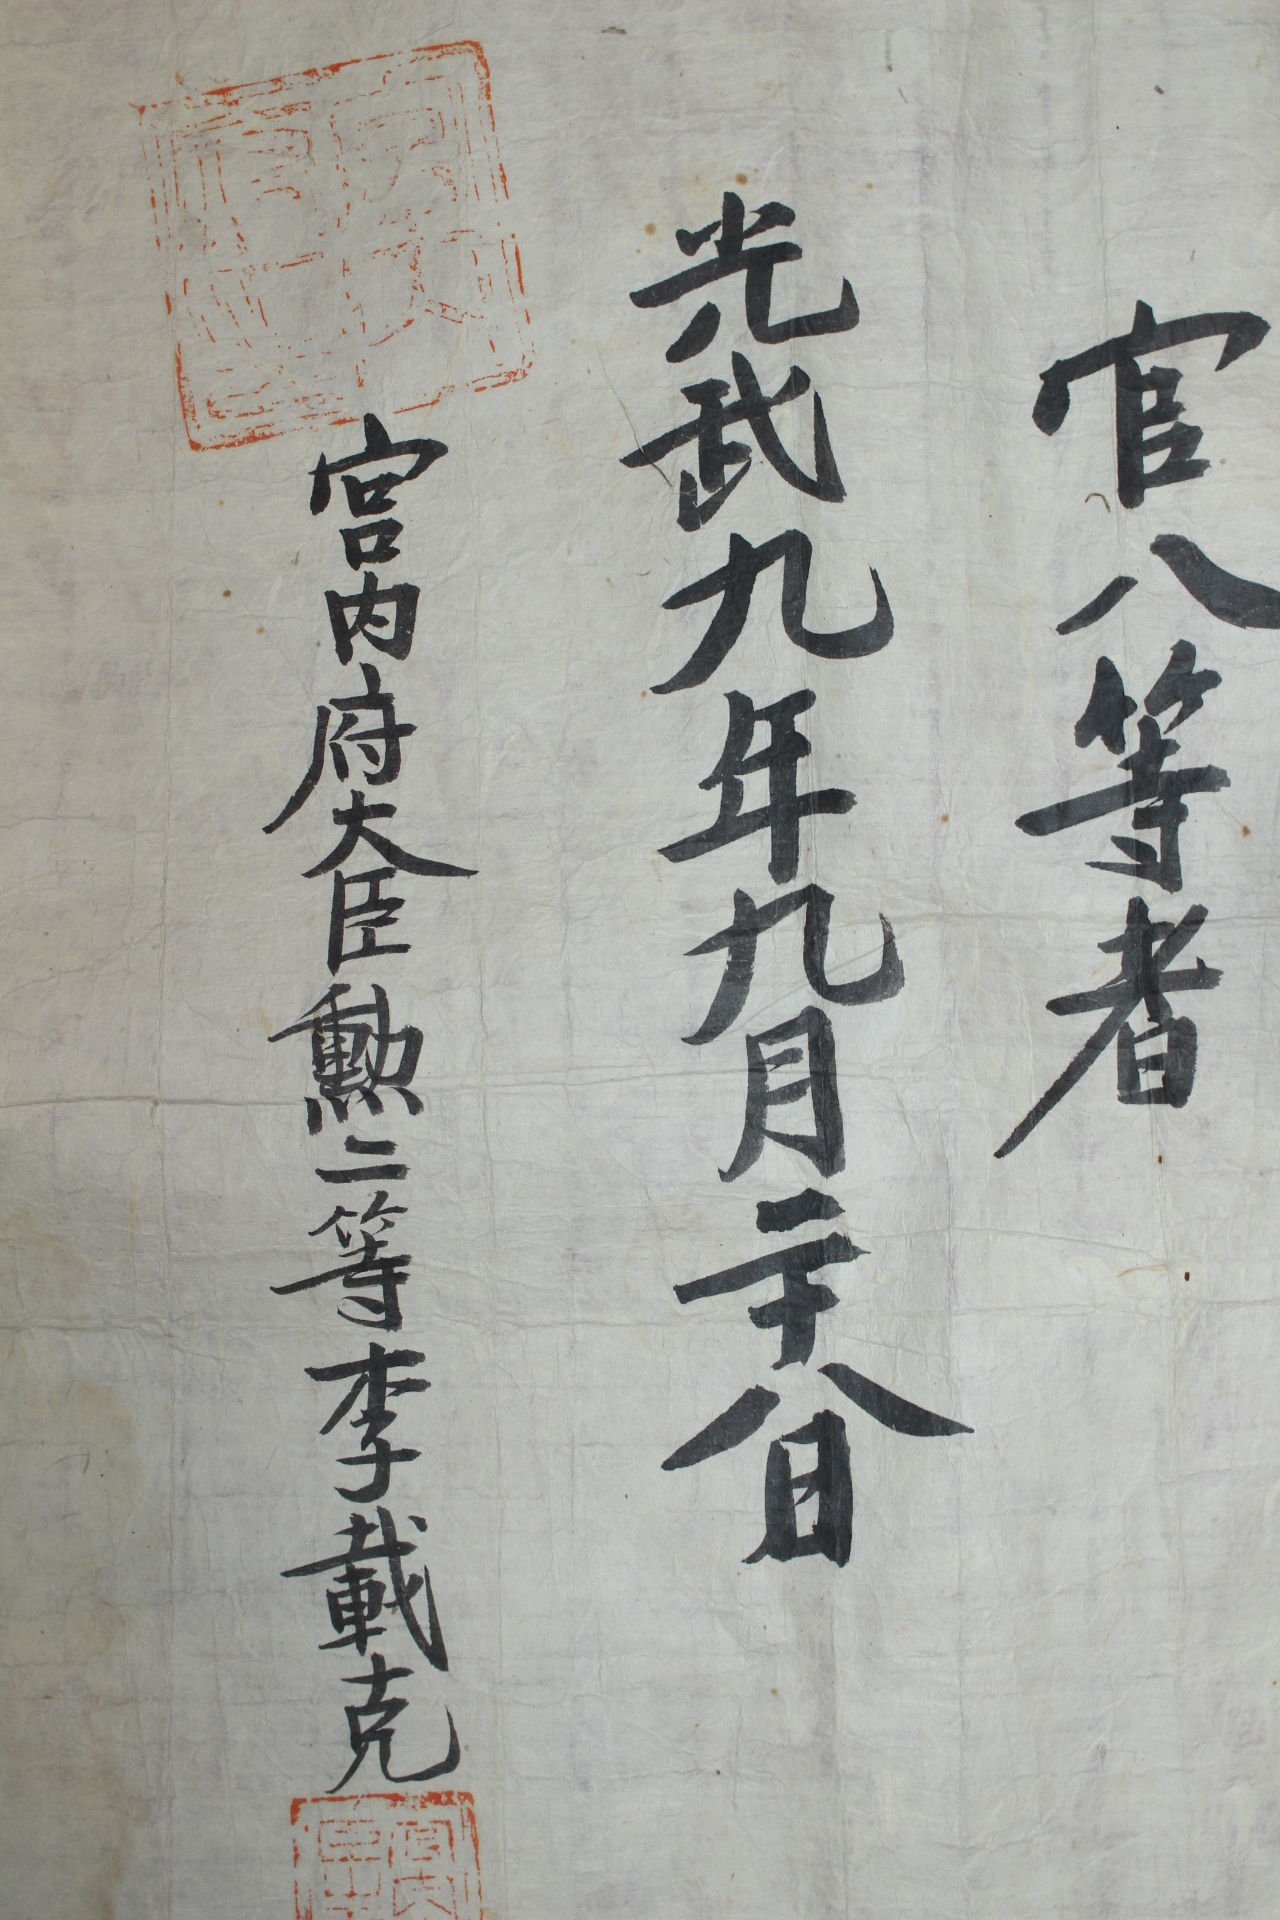 官八等者
光武九年九月二十八日
宮內府大臣勳二等李載克